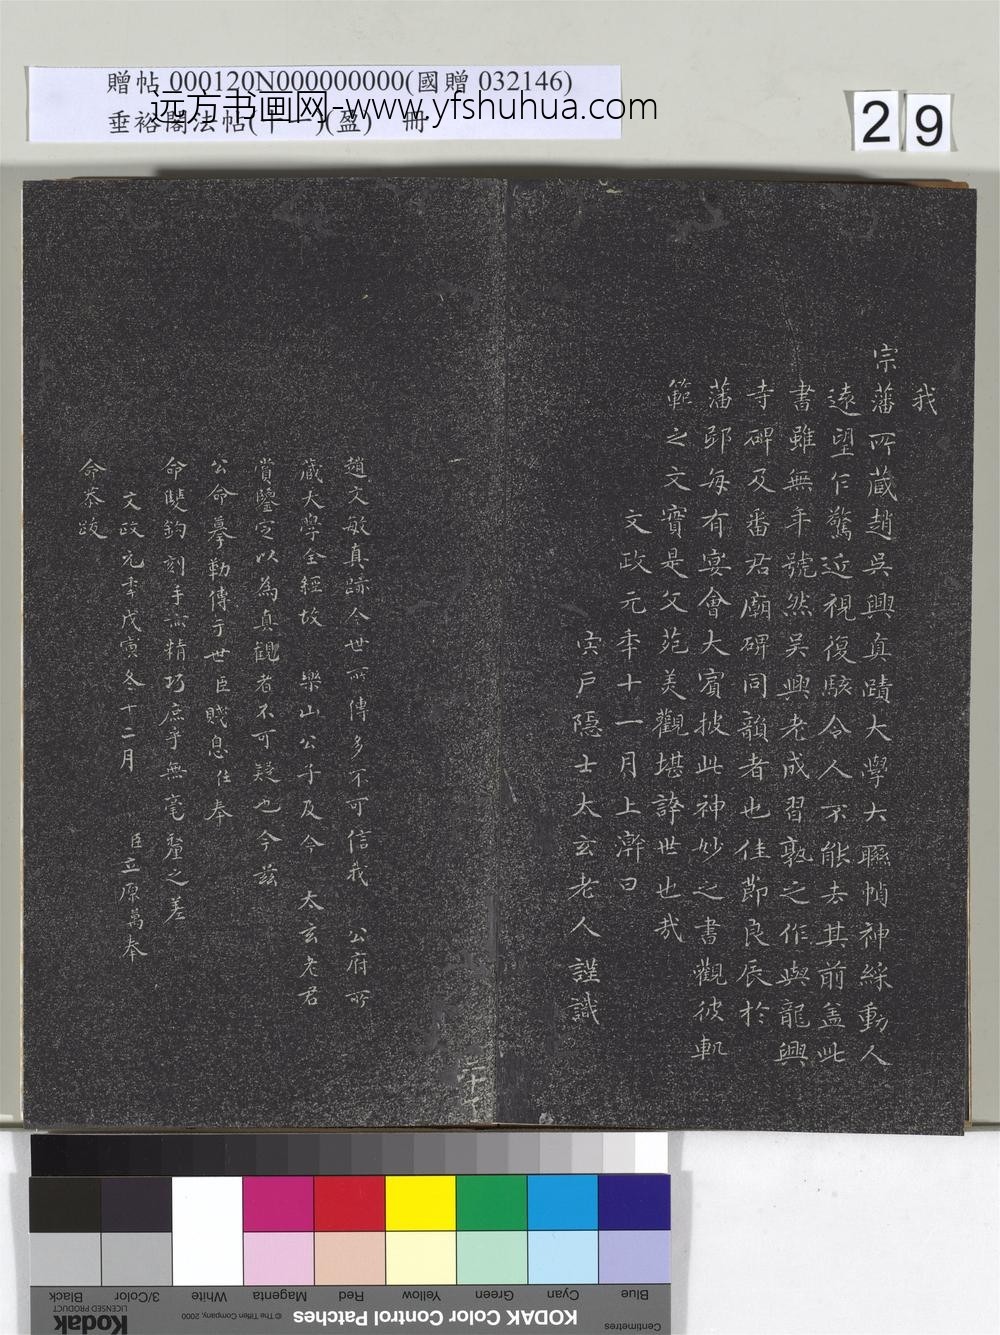 贈帖 000120N000000000(國贈 032146)
垂裕閣法帖(十一)(盈) 冊
远方书画网-www.yfshuhua.com
29
我
宗藩所藏趙吳興真蹟大學大聯幀神綵動人
遠望乍驚近視復駭令人不能去其前蓋此
書雖無年號然吳興老成習熟之作與龍興
寺碑及番君廟碑同韻者也佳節良辰於
藩邸每有宴會大賓披此神妙之書觀彼軌
範之文寶是父苑美觀堪誇世也哉
文政元年十一月上澣日
宍戶隱士太玄老人謹識
趙文敏真跡今世所傳多不可信我 公府所
藏大學全經故 樂山公子及今 太玄老君
賞鑒定以為真觀者不可疑也今茲
公命摹勒傳于世臣賤息任奉
命雙鈎刻手亦精巧庶乎無毫釐之差
文政元年戊寅冬十二月 臣立原萬奉
命恭跋
Black
3/Color
White
Magenta
Red
Yellow
Green
Cyan
Blue
Kodak
LICENSED PRODUCT
© The Tiffen Company, 2000
KODAK Color Control Patches
Centimetres